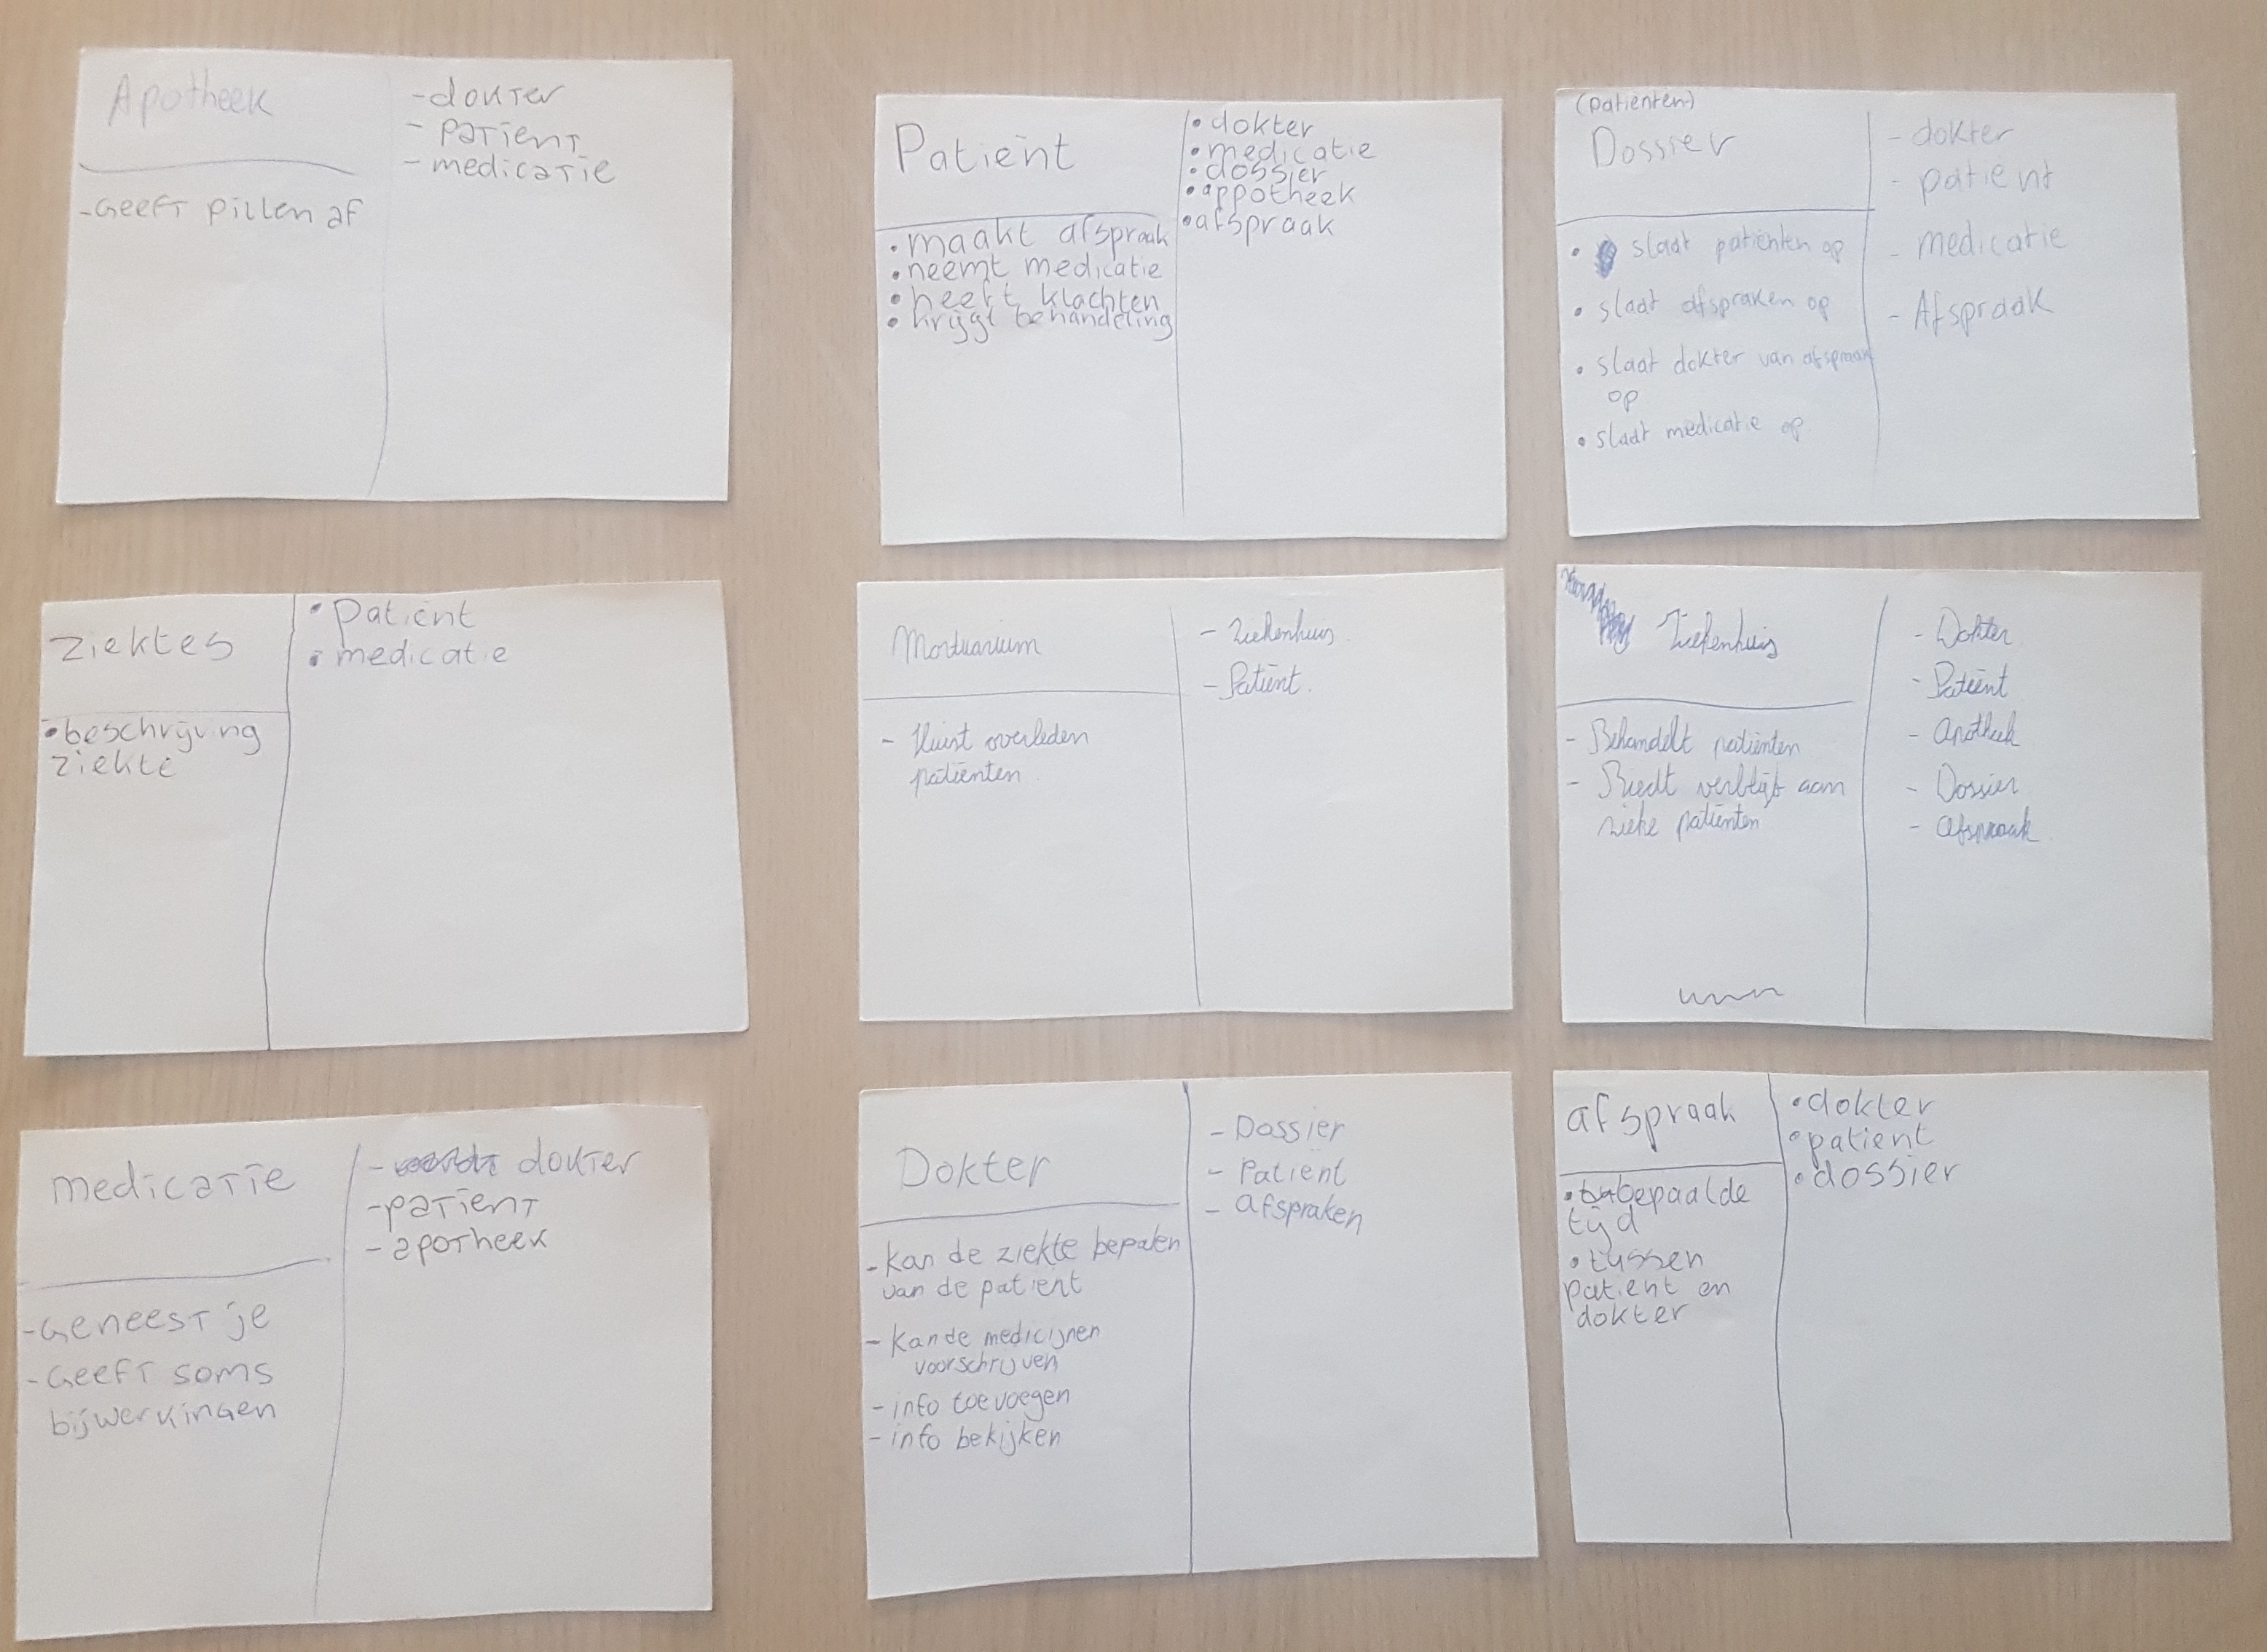 Apotheek
-Geeft pillen af
-dokter
- patient
- medicatie
Patiënt
• maakt afspraak
• neemt medicatie
• heeft klachten
• krijgt behandeling
• dokter
• medicatie
• dossier
• appotheek
• afspraak
(patiënten)
Dossier
• slaat patiënten op
• slaat afspraken op
• slaat dokter van afspraak
op
• slaat medicatie op
- dokter
- patient
- medicatie
- Afspraak
Ziektes
• beschrijving
ziekte
• Patient
• medicatie
Mortuarium
- Huist overleden
patiënten
- Ziekenhuis.
- Patiënt.
Ziekenhuis
- Behandelt patiënten
- Biedt verblijf aan
zieke patiënten
- Dokter
- Patiënt
- Apotheek
- Dossier
- afspraak
medicatie
-Geneest je
-Geeft soms
bijwerkingen
- dokter
-patient
- apotheek
Dokter
-kan de ziekte bepalen
van de patient
- kan de medicijnen
voorschrijven
- info toevoegen
- info bekijken
- Dossier
- Patient
- afspraken
afspraak
• bepaalde
tijd
• tussen
patient en
dokter
• dokter
• patient
• dossier